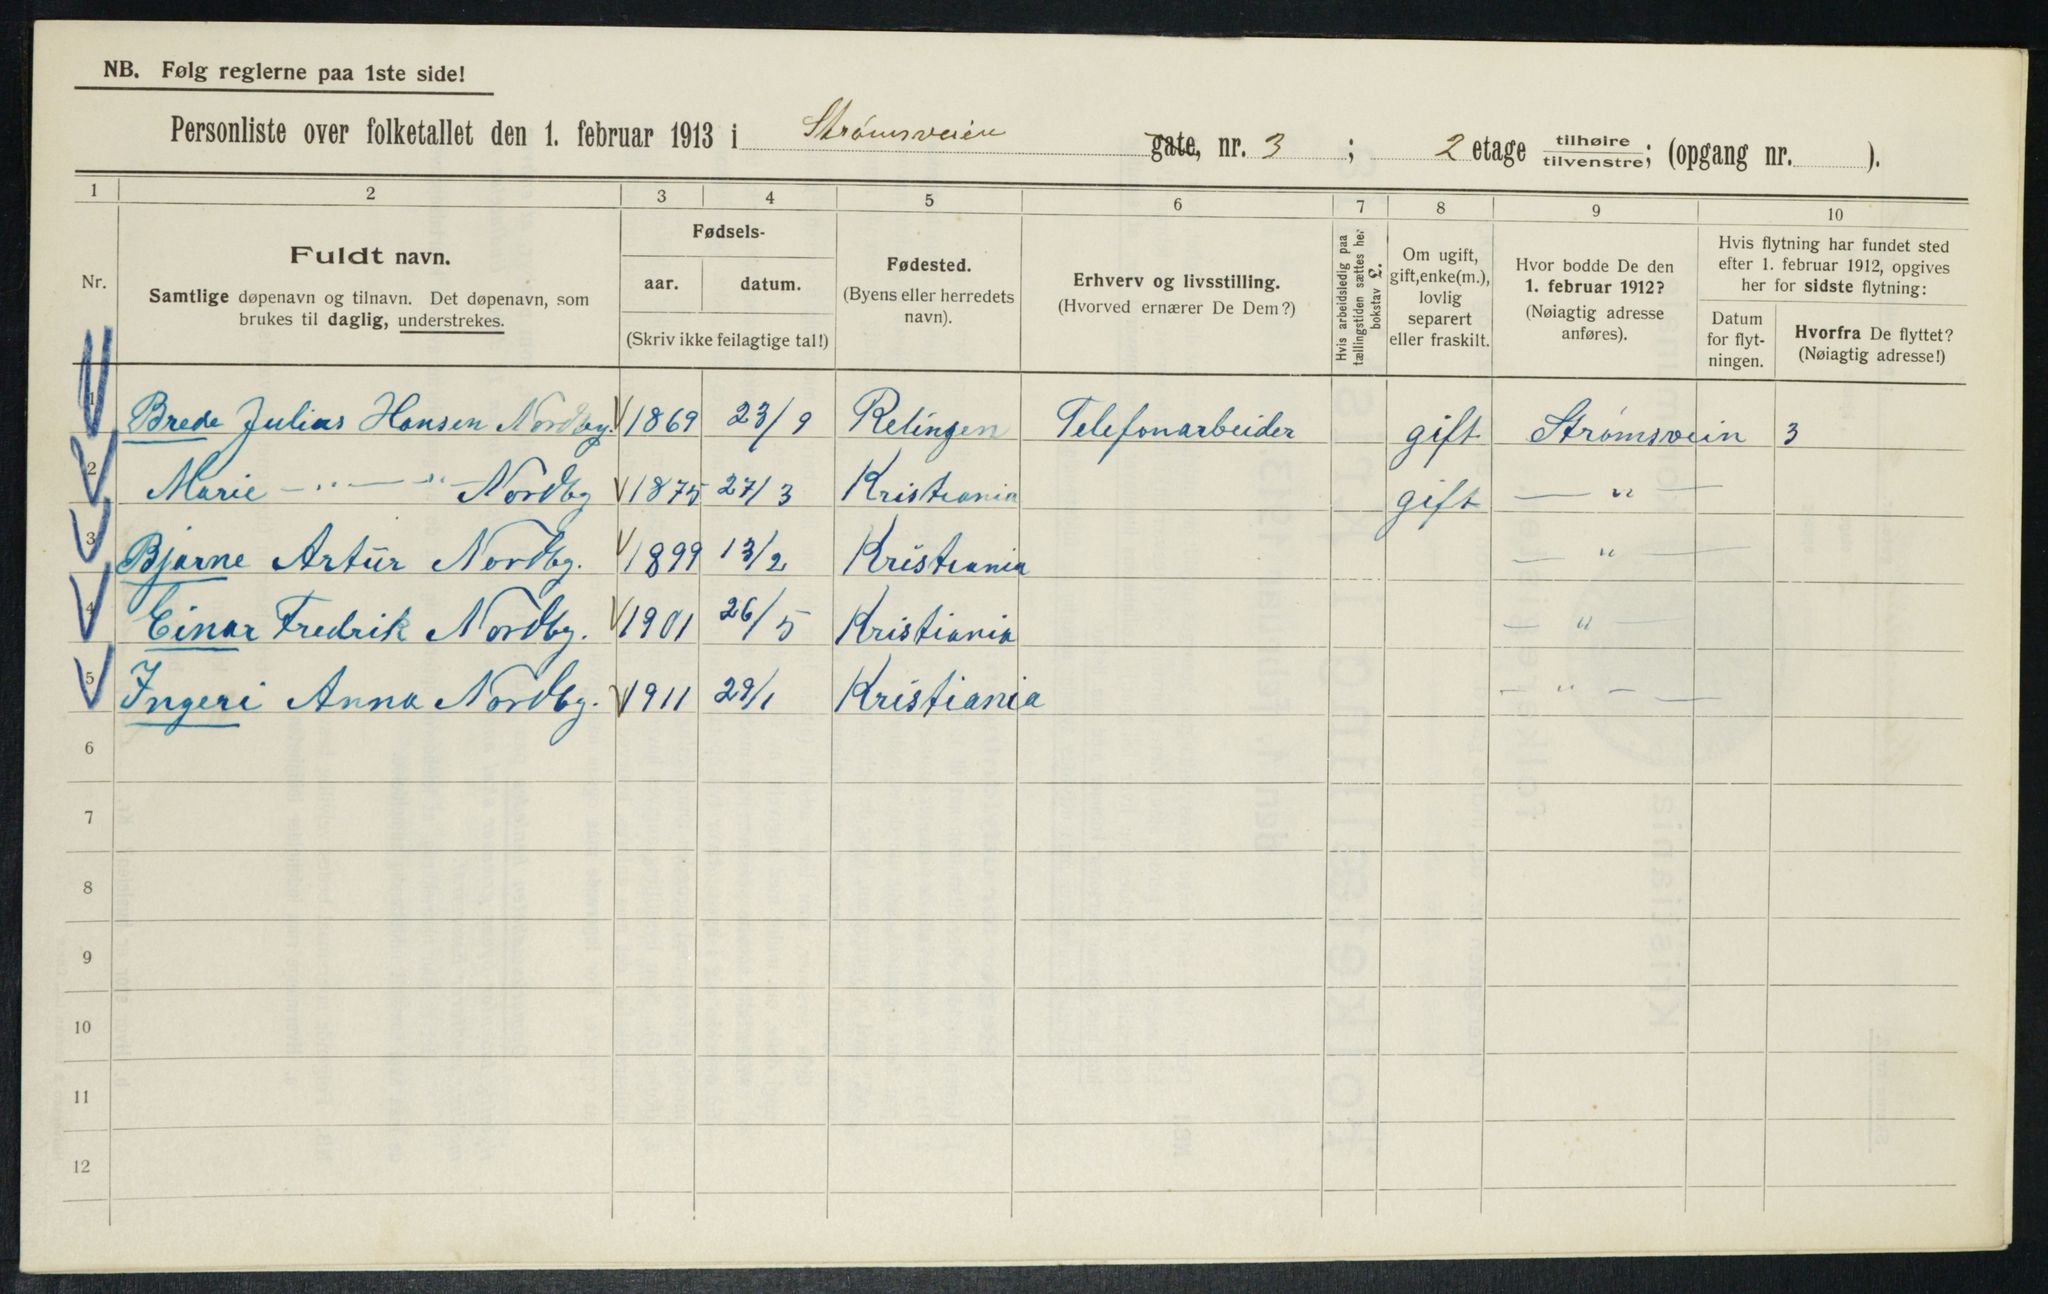 NB. Følg reglerne paa 1ste side!
Personliste over folketallet den 1. februar 1913 i Strømsveien gate, nr. 3 ; 2 etage tilhøire/tilvenstre; (opgang nr. ).
1 2 3 4 5 6 7 8 9 10
Nr.
Fuldt navn.
Samtlige døpenavn og tilnavn. Det døpenavn, som
brukes til daglig, understrekes.
Fødsels-
aar. datum.
(Skriv ikke feilagtige tal!)
Fødested.
(Byens eller herredets
navn).
Erhverv og livsstilling.
(Hvorved ernærer De Dem?)
Hvis arbeidsledig paa
tællingstiden sættes her
bokstav L.
Om ugift,
gift, enke(m.),
lovlig
separert
eller fraskilt.
Hvor bodde De den
1. februar 1912?
(Nøiagtig adresse
anføres).
Hvis flytning har fundet sted
efter 1. februar 1912, opgives
her for sidste flytning:
Datum
for flyt-
ningen.
Hvorfra De flyttet?
(Nøiagtig adresse!)
1 Brede Julius Hansen Nordby. 1869 23/9 Relingen Telefonarbeider gift Strømsvein 3
2 Marie — " — " — Nordby 1875 27/3 Kristiania gift — " —
3 Bjarne Artur Nordby. 1899 13/2 Kristiania — " —
4 Einar Fredrik Nordby. 1901 26/5 Kristiania — " —
5 Ingeri Anna Nordby. 1911 29/1 Kristiania — " — —
6
7
8
9
10
11
12